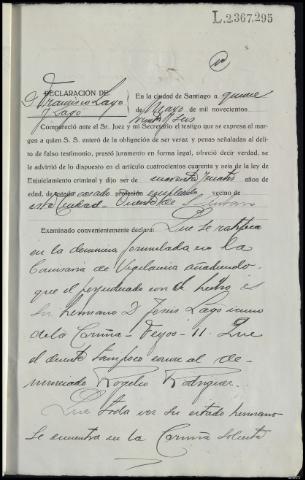 L.2.367,295
DECLARACIÓN DE
D. Francisco Lago
y Lago
En la ciudad de Santiago a quince
de Mayo de mil novecientos
veinte y seis
Compareció ante el Sr. Juez y mi Secretario el testigo que se expresa al mar-
gen a quien S. S. enteró de la obligación de ser veraz y penas señaladas al deli-
to de falso testimonio, prestó juramento en forma legal, ofreció decir verdad, se
le advirtió de lo dispuesto en el artículo cuatrocientos cuarenta y seis de la ley de
Enjuiciamiento criminal y dijo ser de cuarenta y cuatro años de
edad, de estado casado profesión empleado vecino de
esta Ciudad
Examinado convenientemente declara: Que se ratifica
en la denuncia formulada en la
Comisaria de Vigilancia añadiendo
que el perjudicado con el hecho es
su hermano D Jesús Lago vecino
de la Coruña 11. Que
el dicente tampoco conoce al de-
nunciado Rogelio Rodriguez.
Que hermano
se encuentra en la Coruña